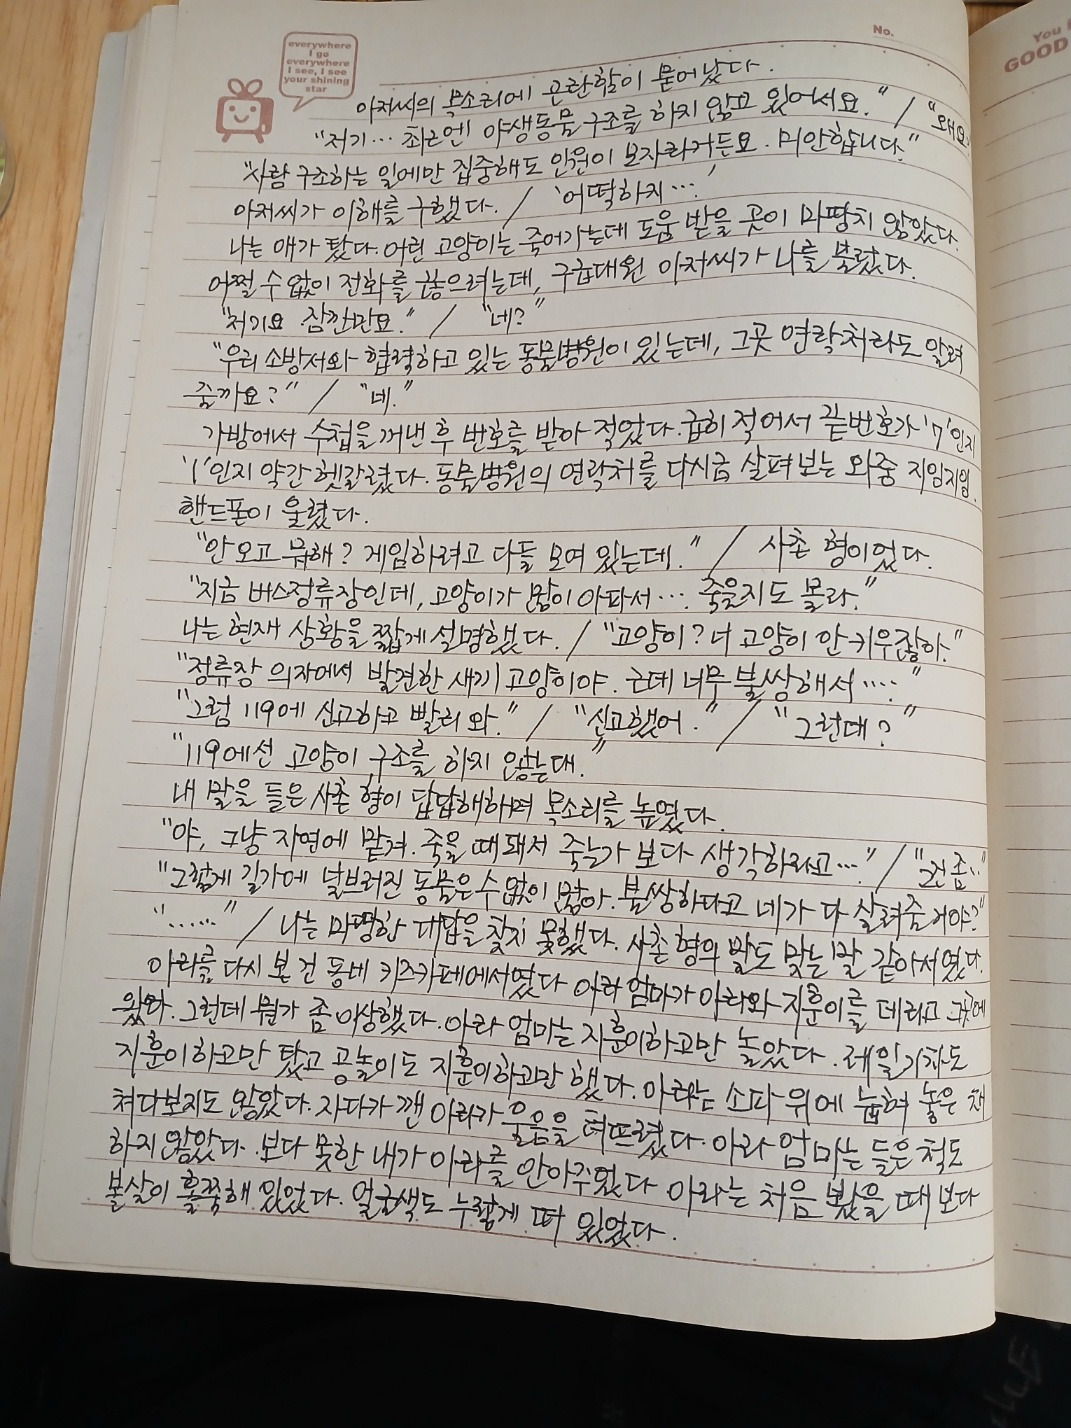 everywhere
I go
everywhere
I see, I see
your shining
star
No.
You
GOOD
아저씨의 목소리에 곤란함이 묻어났다.
"저기… 최근엔 야생동물 구조를 하지 않고 있어서요." / "왜요?
"사람 구조하는 일에만 집중해도 인원이 모자라거든요. 미안합니다."
아저씨가 이해를 구했다. / '어떡하지…'
나는 애가 탔다. 어린 고양이는 죽어가는데 도움 받을 곳이 마땅치 않았다.
어쩔 수 없이 전화를 끊으려는데, 구급대원 아저씨가 나를 불렀다.
"저기요 잠깐만요." / "네?"
"우리 소방서와 협력하고 있는 동물병원이 있는데, 그곳 연락처라도 알려
줄까요?" / "네."
가방에서 수첩을 꺼낸 후 번호를 받아 적었다. 급히 적어서 끝번호가 '7'인지
'1'인지 약간 헷갈렸다. 동물병원의 연락처를 다시금 살펴보는 와중 지잉지잉.
핸드폰이 울렸다.
"안 오고 뭐해? 게임하려고 다들 모여 있는데." / 사촌 형이었다.
"지금 버스정류장인데, 고양이가 많이 아파서…. 죽을지도 몰라."
나는 현재 상황을 짧게 설명했다. / "고양이? 너 고양이 안 키우잖아."
"정류장 의자에서 발견한 새끼 고양이야. 근데 너무 불쌍해서…."
"그럼 119에 신고하고 빨리 와." / "신고했어." / "그런데?"
"119에선 고양이 구조를 하지 않는대."
내 말을 들은 사촌 형이 답답해하며 목소리를 높였다.
"야, 그냥 자연에 맡겨. 죽을 때 돼서 죽는가 보다 생각하라고…" / "그건 좀…"
"그렇게 길가에 널브러진 동물은 수없이 많아. 불쌍하다고 네가 다 살려줄 거야?"
"……" / 나는 마땅한 대답을 찾지 못했다. 사촌 형의 말도 맞는 말 같아서였다.
아라를 다시 본 건 동네 키즈카페에서였다 아라 엄마가 아라와 지훈이를 데리고 그곳에
왔다. 그런데 뭔가 좀 이상했다. 아라 엄마는 지훈이하고만 놀았다. 레일기차도
지훈이하고만 탔고 공놀이도 지훈이하고만 했다. 아라는 소파 위에 눕혀 놓은 채
쳐다보지도 않았다. 자다가 깬 아라가 울음을 터뜨렸다. 아라 엄마는 들은 척도
하지 않았다. 보다 못한 내가 아라를 안아주었다 아라는 처음 봤을 때 보다
볼살이 홀쭉해 있었다. 얼굴색도 누렇게 떠 있었다.